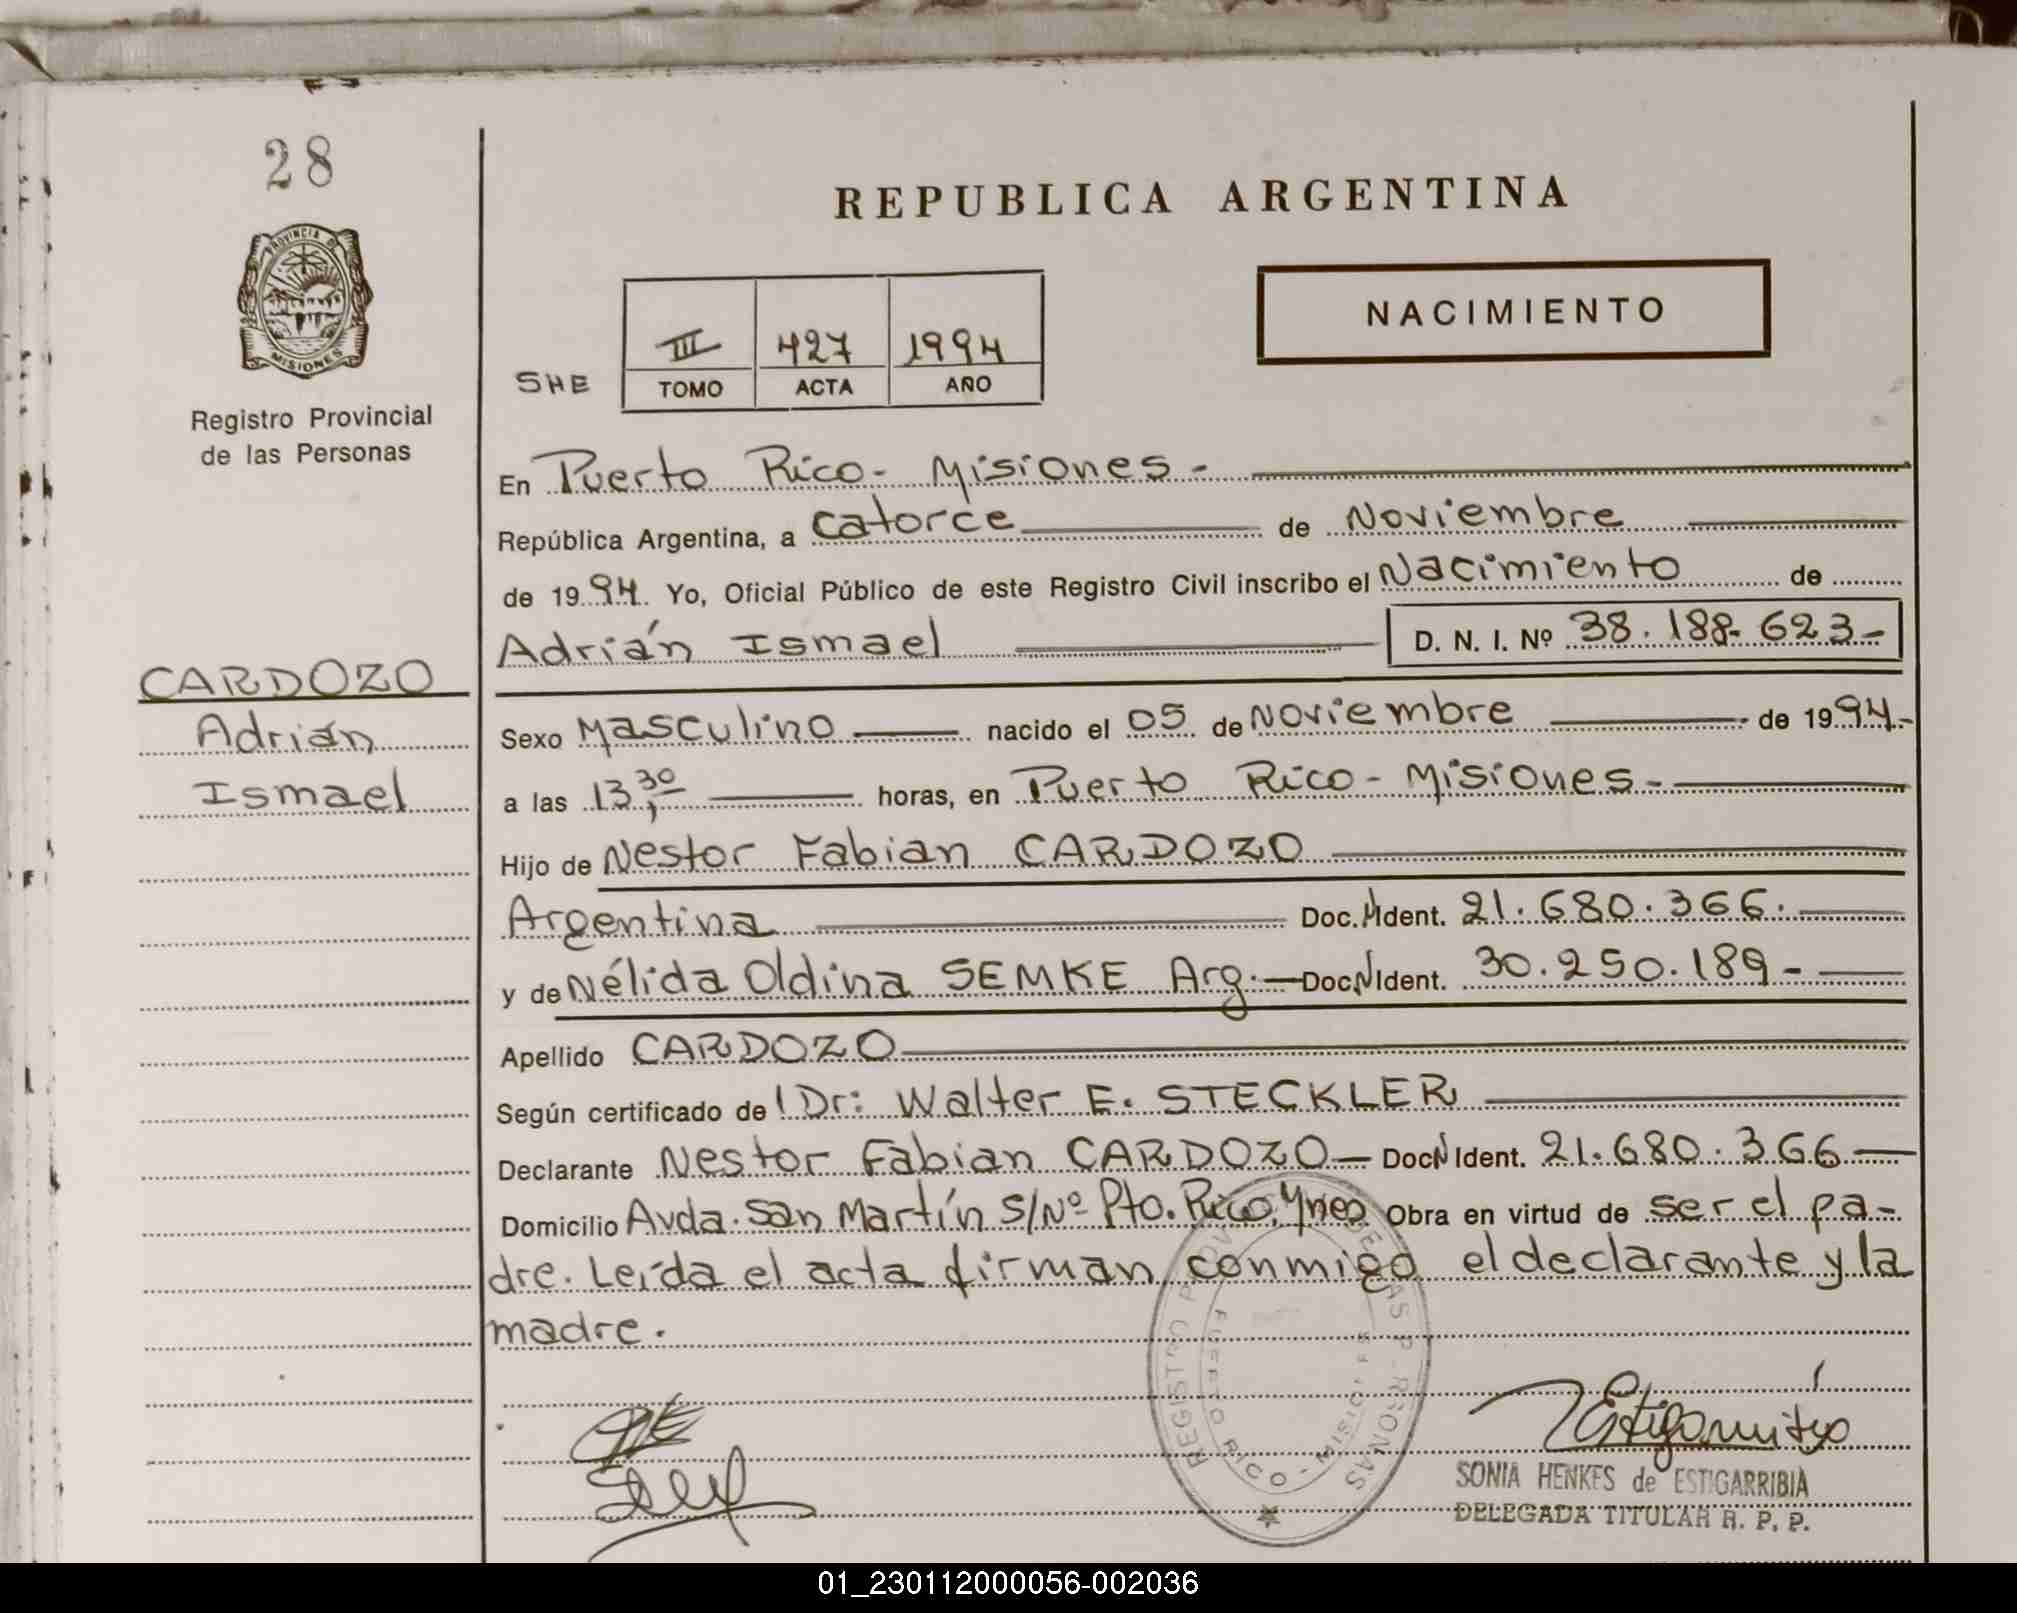 28
REPUBLICA ARGENTINA
PROVINCIA DE
MISIONES
NACIMIENTO
III 427 1994
SHE
TOMO ACTA AÑO
Registro Provincial
de las Personas
En Puerto Rico - Misiones -
República Argentina, a catorce de Noviembre
de 1994. Yo, Oficial Público de este Registro Civil inscribo el Nacimiento de
Adrián Ismael D. N. I. Nº 38.188.623-
CARDOZO
Adrián
Ismael
Sexo Masculino nacido el 05 de Noviembre de 1994.-
a las 13,30 horas, en Puerto Rico - Misiones -
Hijo de Nestor Fabian CARDOZO
Argentina Doc. N Ident. 21.680.366.
y de Nélida Oldina SEMKE Arg. Doc. N Ident. 30.250.189-
Apellido CARDOZO
Según certificado de l Dr: Walter E. STECKLER
Declarante Nestor Fabian CARDOZO Doc N Ident. 21.680.366
Domicilio Avda. San Martín S/Nº Pto. Rico, Mnes Obra en virtud de ser el pa-
dre. Leída el acta firman conmigo el declarante y la
madre.
REGISTRO
PUERTO RICO - MISIONES
Estigarribia
SONIA HENKES de ESTIGARRIBIA
DELEGADA TITULAR R. P. P.
01_230112000056-002036